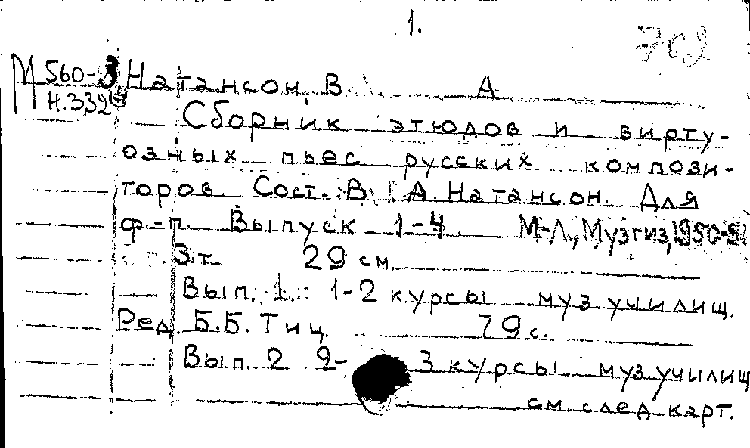 1.
702
М 560-3 Натансон, В. А
Н.332
Сборник этюдов и вирту-
озных пьес русских компози-
торов Сост. В. А Натансон. Для
ф-п. Выпуск 1-4 М-Л., Музгиз, 1950-5
3 т. 29 см.
Вып. 1.: 1-2 курсы муз училищ.
Ред Б.Б. Тиц 79 с.
Вып. 2 2- 3 курсы муз училищ
см след карт.